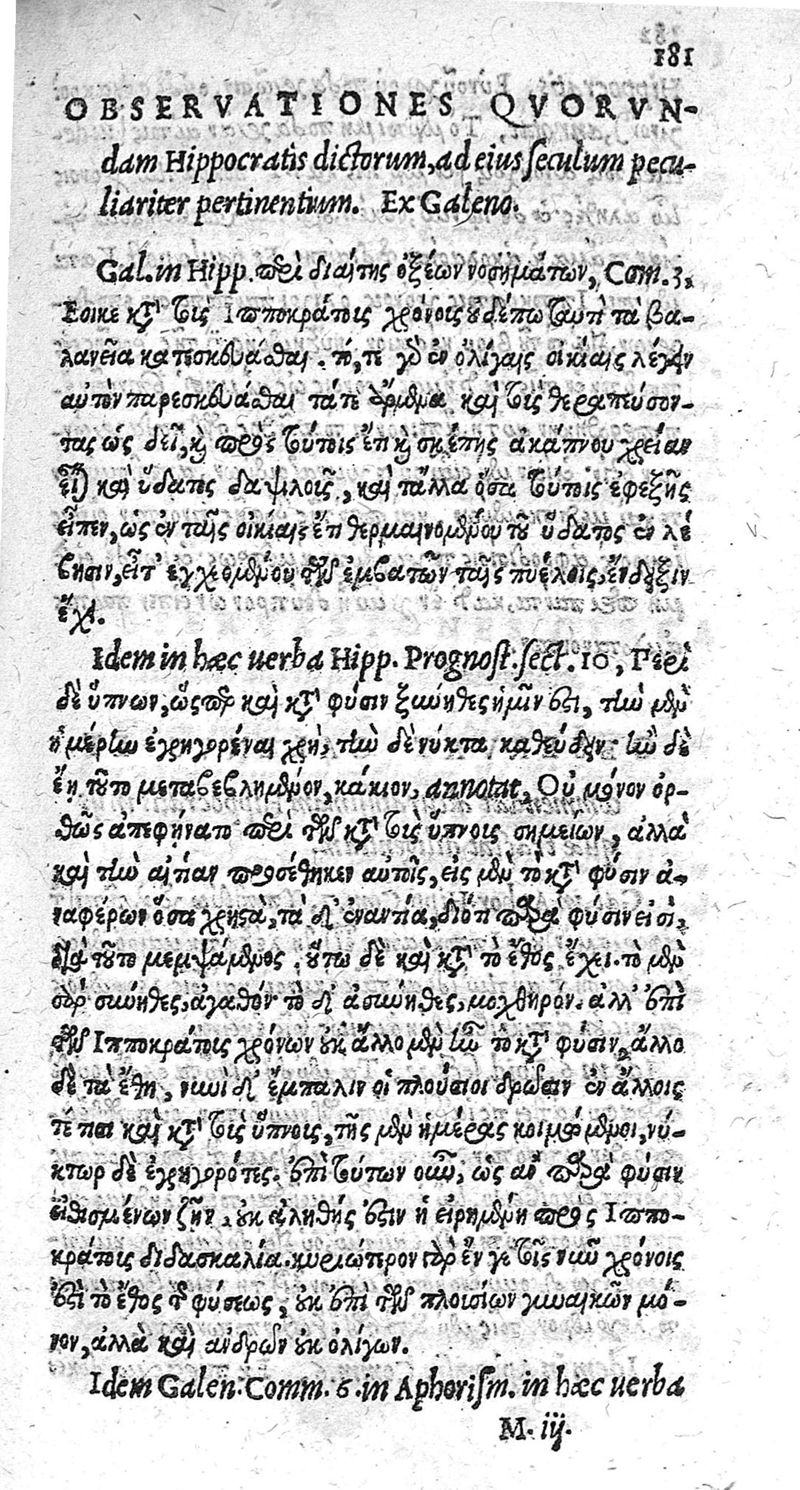 181
OBSERVATIONES QVORVN-
dam Hippocratis dictorum, ad eius seculum pecu-
liariter pertinentium. Ex Galeno.
Gal. in Hipp. περὶ διαίτης ὀξέων νοσημάτων, Com. 3,
Ἔοικε κτ' τοὺς Ἱπποκράτοις χρόνοις οὐδέπω ταυτὶ τὰ βα-
λανεῖα κατεσκευάσθαι. τό, τε γὸ ἐν ὀλίγαις οἰκίαις λέγειν
αὐτὸν παρεσκευάσθαι τά τε ὄργανα καὶ τοὺς θεραπεύσον-
τας ὡς δεῖ, καὶ πρὸς τούτοις ἔτι καὶ σκέπης ἀκάπνου χρείαν
εἶναι καὶ ὕδατος δαψιλοῦς, καὶ τἄλλα ὅσα τούτοις ἐφεξῆς
εἶπεν, ὡς ἐν ταῖς οἰκίαις ἔτι θερμαινομένου τοῦ ὕδατος ἐν λέ
βησιν, εἶτ' ἐγχεομένου τῶν ἐμβατῶν ταῖς πυέλοις, ἔνδειξιν
ἔχει.
Idem in hæc uerba Hipp. Prognost. sect. 10, Περὶ
δὲ ὕπνων, ὥσπερ καὶ κτ' φύσιν ξύνηθες ἡμῖν ἐστι, τὴν μὲν
ἡμέρην ἐγρηγορέναι χρὴ, τὴν δὲ νύκτα καθεύδειν· ἢν δὲ
ἔῃ τοῦτο μεταβεβλημένον, κάκιον, annotat, Οὐ μόνον ὀρ-
θῶς ἀπεφήνατο περὶ τῶν κτ' τοὺς ὕπνοις σημείων, ἀλλὰ
καὶ τὴν αἰτίαν προσέθηκεν αὐτοῖς, εἰς μὲν τὸ κτ' φύσιν ἀ-
ναφέρων ὅσα χρηστὰ, τὰ δ' ἐναντία, διότι παρὰ φύσιν εἰσὶ,
διὰ τοῦτο μεμψάμενος. οὕτω δὲ καὶ κτ' τὸ ἔθος ἔχει. τὸ μὲν
γὰρ σύνηθες, ἀγαθόν· τὸ δ' ἀσύνηθες, μοχθηρόν. ἀλλ' ἐπὶ
τῶν Ἱπποκράτοις χρόνων οὐκ ἄλλο μὲν ἦν τὸ κτ' φύσιν, ἄλλο
δὲ τὰ ἔθη, νυνὶ δ' ἔμπαλιν οἱ πλούσιοι δρῶσιν ἐν ἄλλοις
τέ τισι καὶ κτ' τοὺς ὕπνοις, τῆς μὲν ἡμέρας κοιμώμενοι, νύ-
κτωρ δὲ ἐγρηγορότες. ἐπὶ τούτων οὖν, ὡς ἂν παρὰ φύσιν
εἰθισμένων ζῆν, οὐκ ἀληθής ἐστιν ἡ εἰρημένη πρὸς Ἱππο-
κράτοις διδασκαλία. κυριώτερον γὰρ ἔν γε τοῖς νῦν χρόνοις
ἐστὶ τὸ ἔθος τῆς φύσεως, οὐκ ἐπὶ τῶν πλοισίων γυναικῶν μό-
νον, ἀλλὰ καὶ ἀνδρῶν οὐκ ὀλίγων.
Idem Galen: Comm. 6. in Aphorism. in hæc uerba
M. iij.